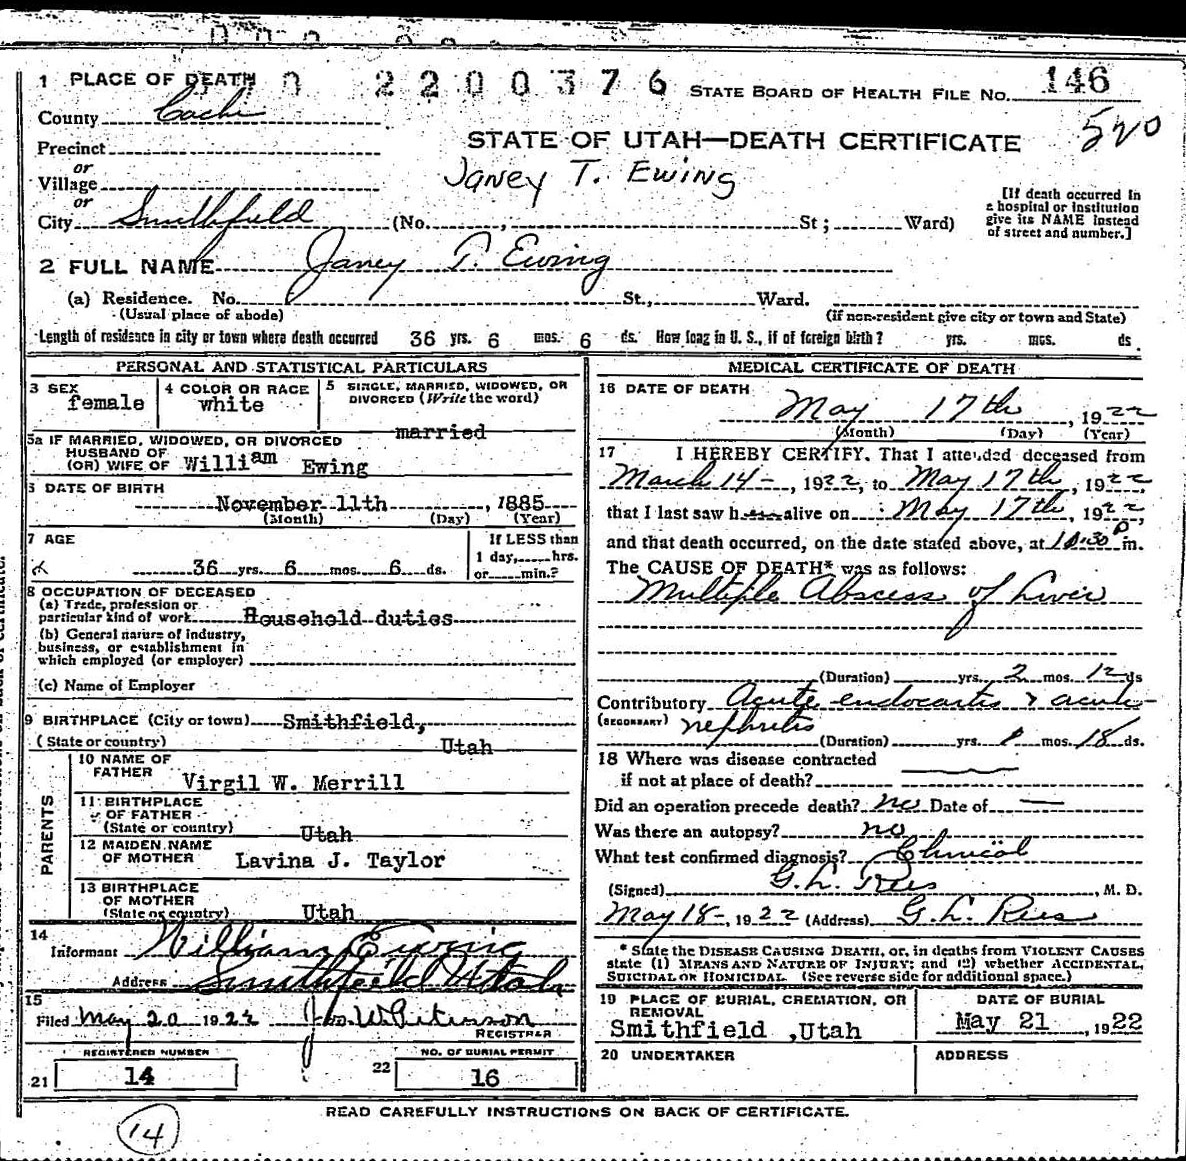 1 PLACE OF DEATH 0 2200376 STATE BOARD OF HEALTH FILE No. 146
County Cache
520
STATE OF UTAH—DEATH CERTIFICATE
Precinct
or
Village
Janey T. Ewing
or
City Smithfield (No. , St; Ward)
[If death occurred in
a hospital or institution
give its NAME instead
of street and number.]
2 FULL NAME Janey T. Ewing
(a) Residence. No. St., Ward.
(Usual place of abode) (If non-resident give city or town and State)
Length of residence in city or town where death occurred 36 yrs. 6 mos. 6 ds. How long in U. S., if of foreign birth? yrs. mos. ds.
PERSONAL AND STATISTICAL PARTICULARS
3 SEX
female
4 COLOR OR RACE
white
5 SINGLE, MARRIED, WIDOWED, OR
DIVORCED (Write the word)
married
5a IF MARRIED, WIDOWED, OR DIVORCED
HUSBAND OF
(OR) WIFE OF William Ewing
6 DATE OF BIRTH
November 11th , 1885
(Month) (Day) (Year)
7 AGE
36 yrs. 6 mos. 6 ds.
If LESS than
1 day, hrs.
or min.?
8 OCCUPATION OF DECEASED
(a) Trade, profession or
particular kind of work Household duties
(b) General nature of industry,
business, or establishment in
which employed (or employer)
(c) Name of Employer
9 BIRTHPLACE (City or town) Smithfield,
(State or country) Utah
PARENTS
10 NAME OF
FATHER Virgil W. Merrill
11 BIRTHPLACE
OF FATHER
(State or country) Utah
12 MAIDEN NAME
OF MOTHER Lavina J. Taylor
13 BIRTHPLACE
OF MOTHER
(State or country) Utah
14
Informant William Ewing
Address Smithfield Utah
15
Filed May 20 1922 Jas. W. Peterson
REGISTRAR
REGISTERED NUMBER
21 14
NO. OF BURIAL PERMIT
22 16
MEDICAL CERTIFICATE OF DEATH
16 DATE OF DEATH
May 17th , 1922
(Month) (Day) (Year)
17 I HEREBY CERTIFY, That I attended deceased from
March 14 - , 1922, to May 17th , 1922,
that I last saw h alive on May 17th , 1922,
and that death occurred, on the date stated above, at m.
The CAUSE OF DEATH* was as follows:
Multiple Abscess of Liver
(Duration) yrs. 2 mos. 12 ds
Contributory Acute endocartis & acute
(SECONDARY) nephritis
(Duration) yrs. 1 mos. 18 ds.
18 Where was disease contracted
if not at place of death?
Did an operation precede death? no Date of —
Was there an autopsy? no
What test confirmed diagnosis? Clinical
(Signed) G. L. Rees , M. D.
May 18 -, 1922 (Address) G. L. Rees
* State the DISEASE CAUSING DEATH, or, in deaths from VIOLENT CAUSES
state (1) MEANS AND NATURE OF INJURY; and (2) whether ACCIDENTAL,
SUICIDAL OR HOMICIDAL (See reverse side for additional space.)
19 PLACE OF BURIAL, CREMATION, OR
REMOVAL
Smithfield ,Utah
DATE OF BURIAL
May 21 , 1922
20 UNDERTAKER
ADDRESS
READ CAREFULLY INSTRUCTIONS ON BACK OF CERTIFICATE.
14